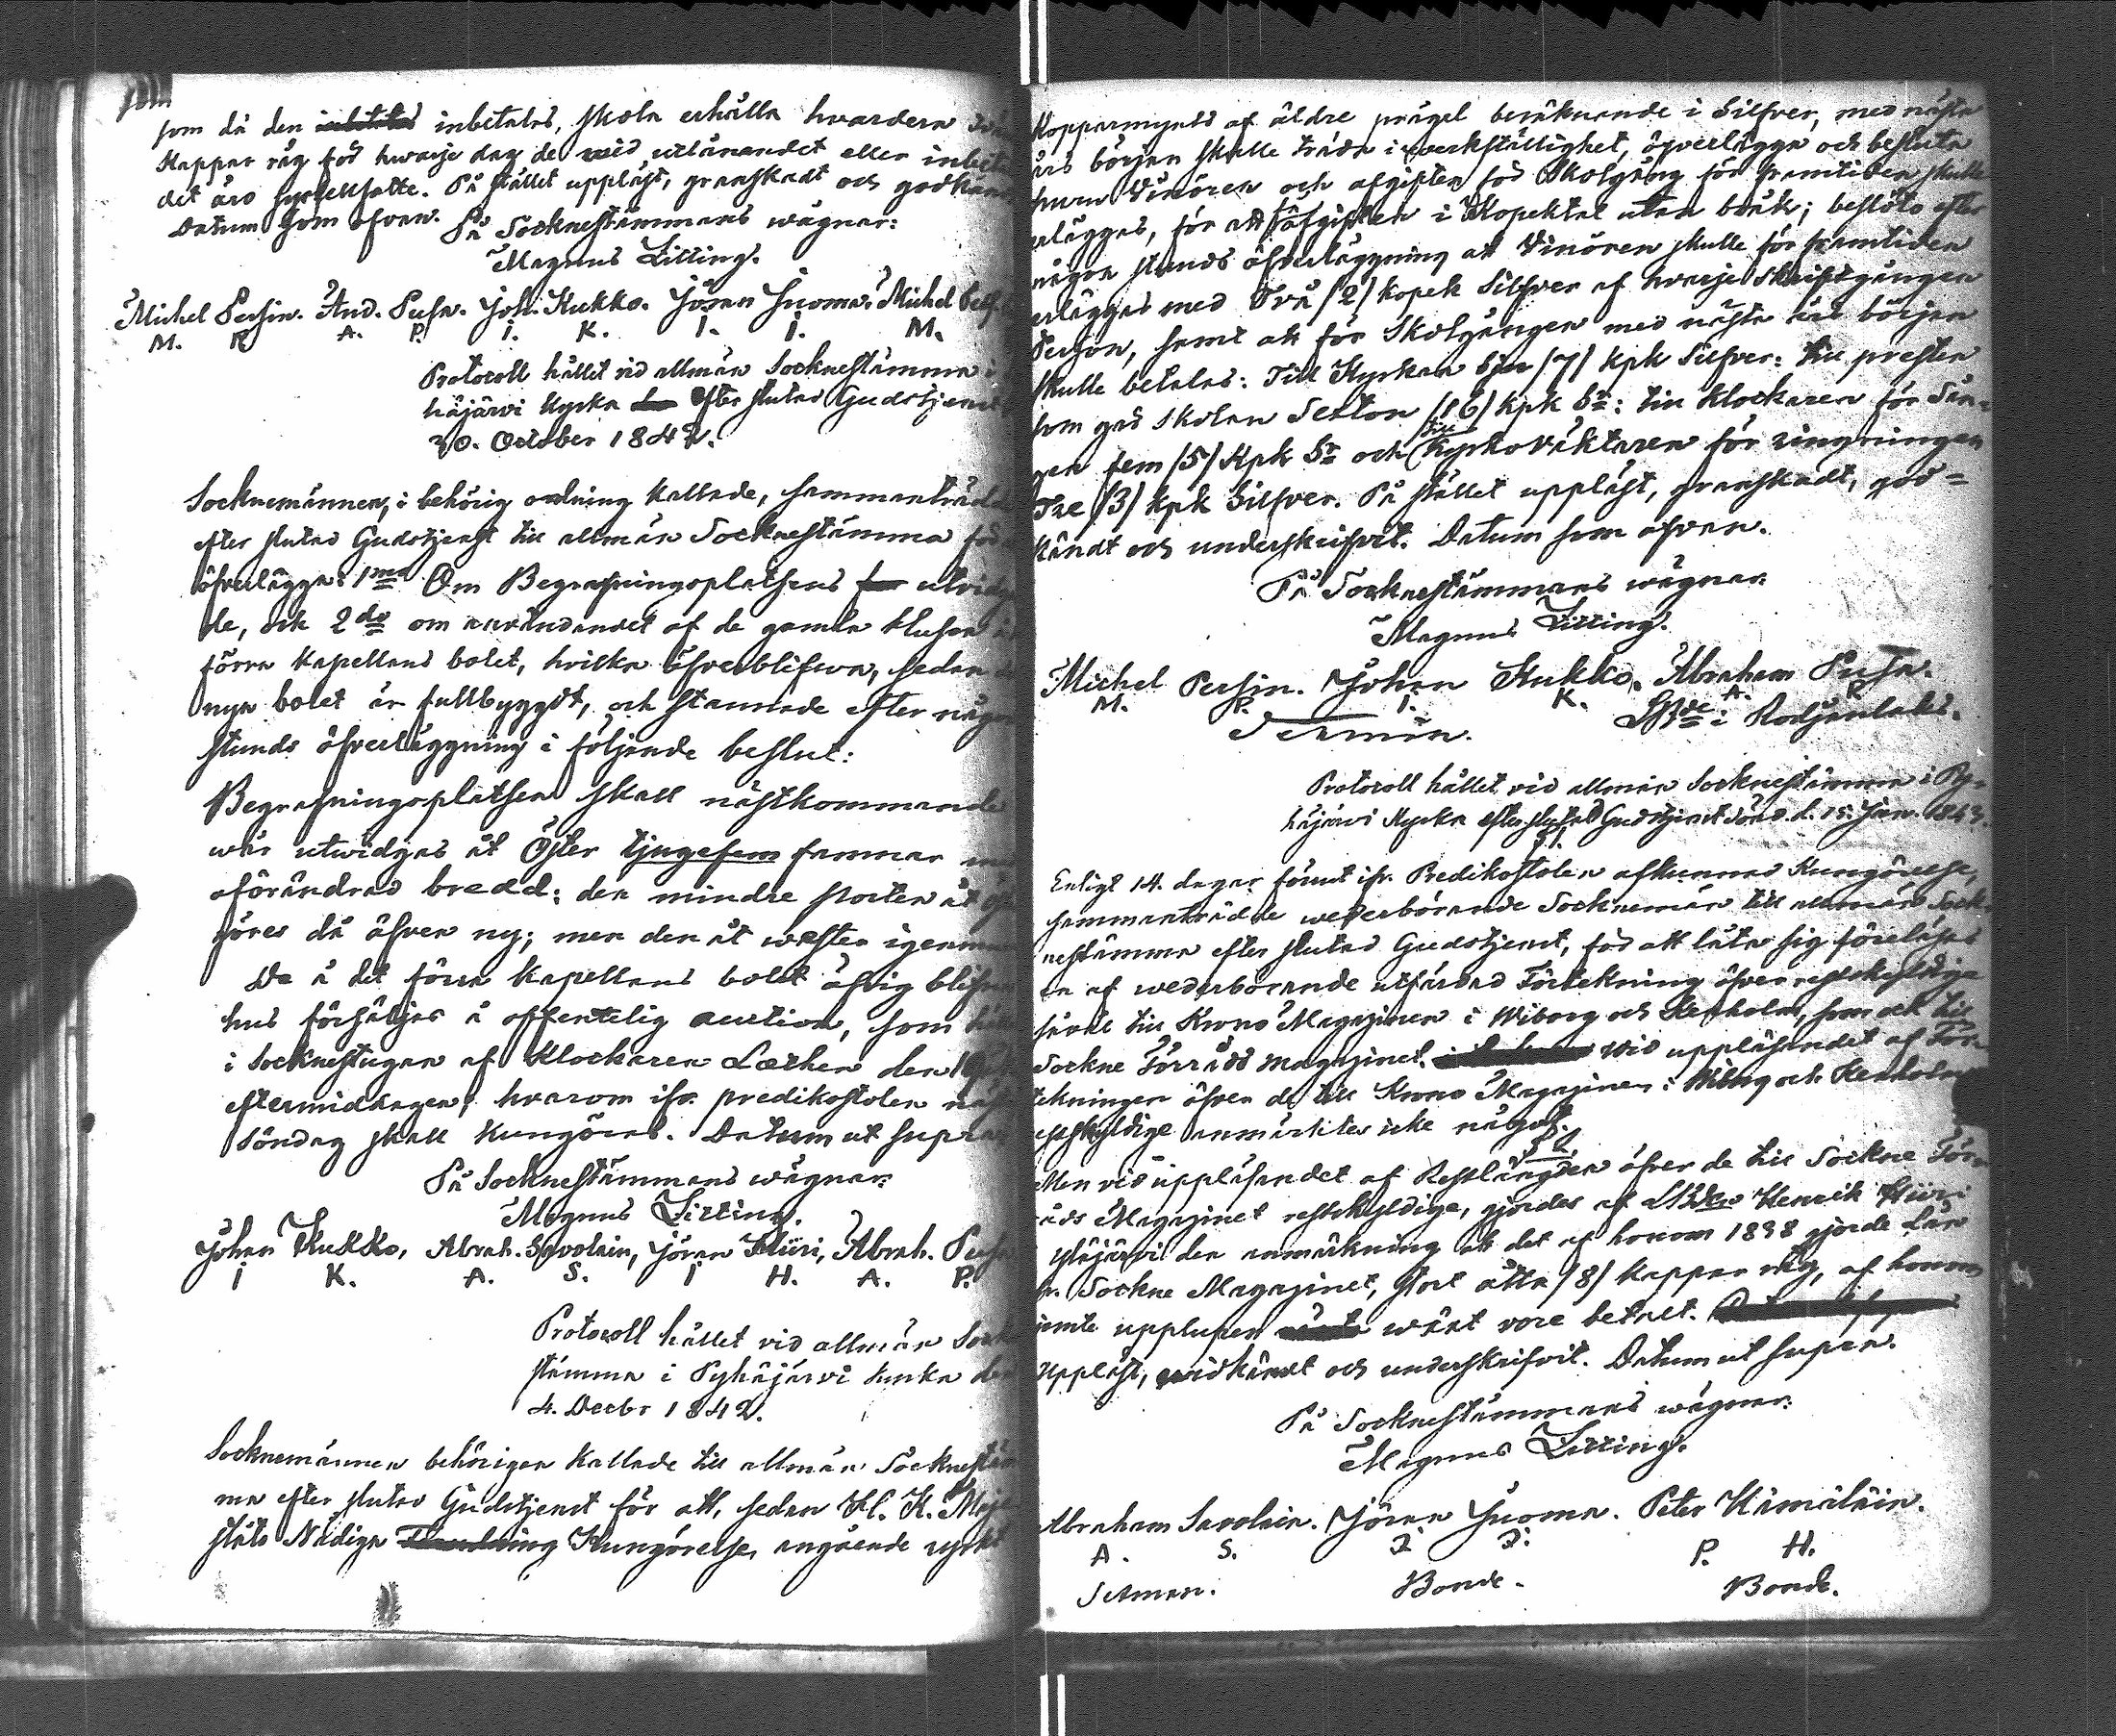 som då den inbetalas, skola erhålla hvardera
Kappar råg för hwarje dag de vid utlånandet eller
det äro sysselsatte. På stället uppläst, granskadt och
Datum som ofvan.
På Socknestämmans wägnar:
Magnus Litting.
Michel Persin. And. Pusa. Joh. Kukko. Jöran Juoma. Michel
M. P. A. P. I. K. I. I. M.
Protocoll hållet vid allmän Socknestämma i
häjärvi Kyrka efter slutad
30. October 1842.
Socknemännen, i behörig ordning Kallade,
efter slutad Gudstjenst till allmän Socknestämma för
öfverlägga: 1mo Om Begrafningsplatsens
de, och 2do om användandet af de gamla
förra Kapellans bolet, hvilka öfverblifwa, sedan
nya bolet är fullbyggdt, och stannade efter någon
stunds öfverläggning i följande beslut:
Begrafningsplatsen skall nästkommande
wår utwidgas åt Öster tjugefem famnar
oförändrad bredd; den mindre porten åt
göres då äfven ny; men den åt wester
De å det förra Kapellans bolet öfrig
hus försäljas å offentelig auction, som
i Socknestugan af Klockaren Læthen den
eftermiddagen, hvarom ifr. predikostolen
Söndag skall Kungöras. Datum ut supra
På Socknestämmans wägnar:
Magnus Litting.
Johan Kukko, Abrah. Savolain, Jöran Hiiri, Abrah.
I K. A. S. I H. A. P.
Protocoll hållet vid allmän
stämma i Pyhäjärvi
4. Decbr 1842.
Socknemännen behörigen Kallade till allmän
ma efter slutad Gudstjenst för att, sedan H. K.
stäts Nådiga Kungörelse, angående
Kopparmynts af äldre prägel beräknande i Silfver, med nästa
års början skulle träda i verkställighet, öfverlägga och besluta
huru Vinören och afgiften för Skolgång för framtiden skulle
erläggas, för att afgiften i Kopektal utan bråk; beslöts efter
någon stunds öfverläggning att Vinören skulle för framtiden
erläggas med Två /2/ Kopek Silfver af hwarje Skriftgången
Person, samt att för Skolgången med nästa års början
skulle betalas: Till Kyrkan Sju /7/ Kpk Silfver: till presten
som ger skolan Sexton /16/ Kpk Sr: till Klockaren för
gen fem /5/ Kpk Sr och till Kyrkowäktaren för ringningen
Tre /3/ Kpk Silfver. På stället uppläst, granskadt, god=
kändt och underskrifvit. Datum som ofvan.
På Socknestämmans wägnar:
Magnus Litting.
Michel Persin. Johan Kukko. Abraham Pusa.
M. P. I. K. A. P.
Protocoll hållet vid allmän Socknestämma i Py-
häjärvi Kyrka efter slutad Gudstjenst Sönd. d. 15. Jan. 1843.
Enligt 14. dagar förut ifr. Predikostolen afkunnad Kungörelse,
sammanträdde wederbörande Socknemän till allmän Sock-
nestämma efter slutad Gudstjenst, för att låta sig föreläsas
en af wederbörande utfärdad Förtekning öfver restskyldige
såväl till Krono Magazinen i Wiborg och Kexholm, som ock till
Sockne Förråds magazinet. Wid uppläsandet af För-
tekningen öfver de till Krono Magazinen i Wiborg och Kexholm
restskyldige anmärktes icke något.
Men vid uppläsandet af Restlängden öfver de till Sockne För-
råds Magazinet restskyldige, gjordes af Henrik Hiiri
Yläjärvi den anmärkning att det af honom 1838 gjorde Lån
fr. Sockne Magazinet, stort åtta /8/ Kappar råg, af honom
jemte upplupen wäxt vore betalt.
Uppläst, godkändt och underskrifvit. Datum ut supra.
På Socknestämmans wägnar:
Magnus Litting.
Abraham Savolain. Jöran Juoma. Peter Hämäläin.
A. S. J. J. P. H.
Bonde. Bonde.